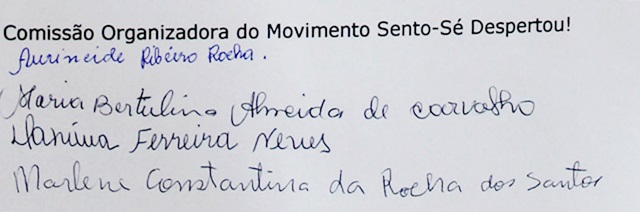 Comissão Organizadora do Movimento Sento-Sé Despertou!
Aurineide Ribeiro Rocha.
Maria Bertulina Almeida de Carvalho
Ferreira Neves
Marlene Constantina da Rocha dos Santos